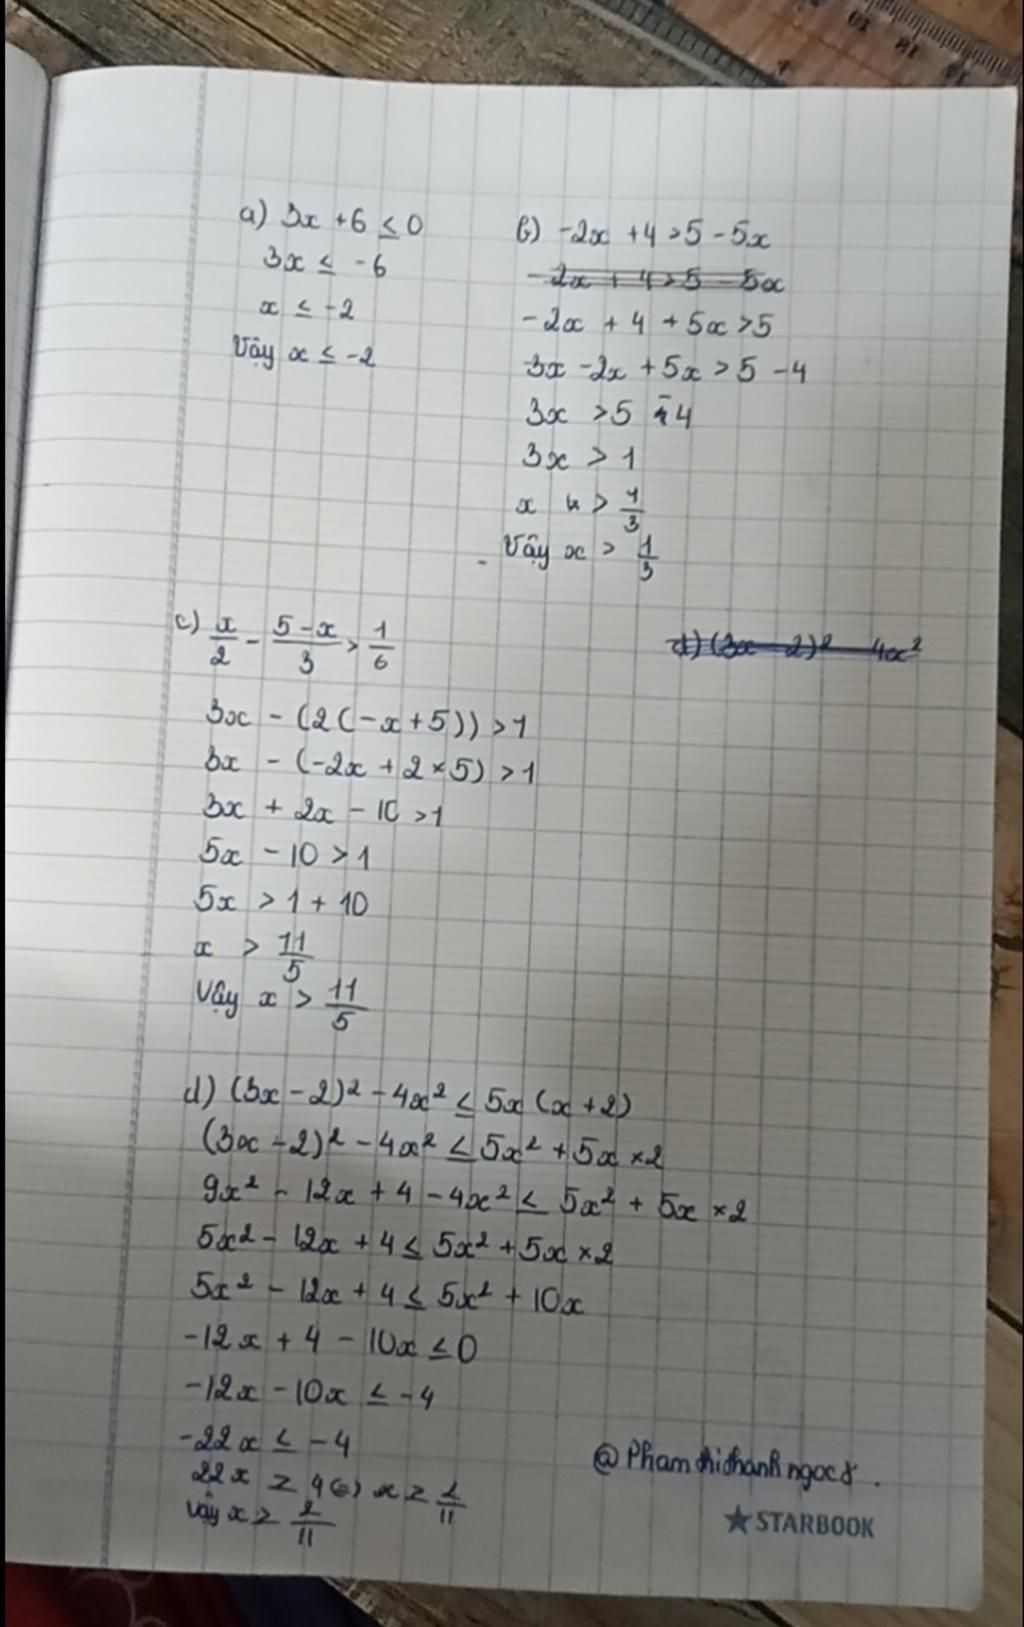 a) 3x + 6 ≤ 0
3x ≤ -6
x ≤ -2
Vậy x ≤ -2
b) -2x + 4 > 5 - 5x
-2x + 4 > 5 - 5x
-2x + 4 + 5x > 5
3x -2x + 5x > 5 - 4
3x > 5 - 4
3x > 1
x > 1/3
Vậy x > 1/3
c) x/2 - (5-x)/3 > 1/6
3x - (2(-x+5)) > 1
3x - (-2x + 2×5) > 1
3x + 2x - 10 > 1
5x - 10 > 1
5x > 1 + 10
x > 11/5
Vậy x > 11/5
d) (3x - 2)² 4x²
d) (3x - 2)² - 4x² ≤ 5x (x + 2)
(3x - 2)² - 4x² ≤ 5x² + 5x × 2
9x² - 12x + 4 - 4x² ≤ 5x² + 5x × 2
5x² - 12x + 4 ≤ 5x² + 5x × 2
5x² - 12x + 4 ≤ 5x² + 10x
-12x + 4 - 10x ≤ 0
-12x - 10x ≤ -4
-22x ≤ -4
22x ≥ 4 (=) x ≥ 2/11
Vậy x ≥ 2/11
@Phamthithanhngoc8.
★STARBOOK